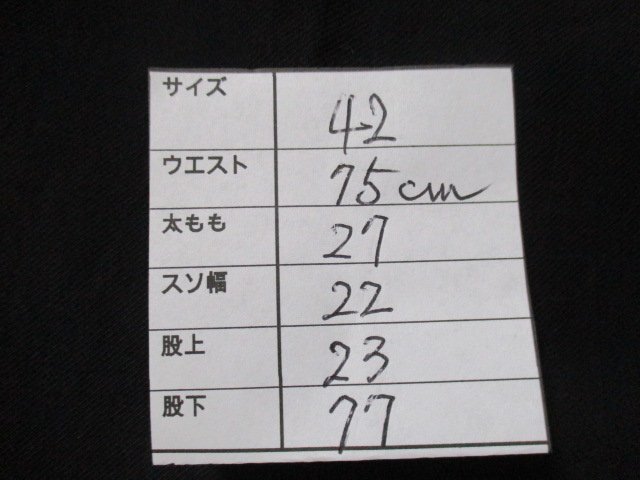 サイズ 42
ウエスト 75cm
太もも 27
スソ幅 22
股上 23
股下 77